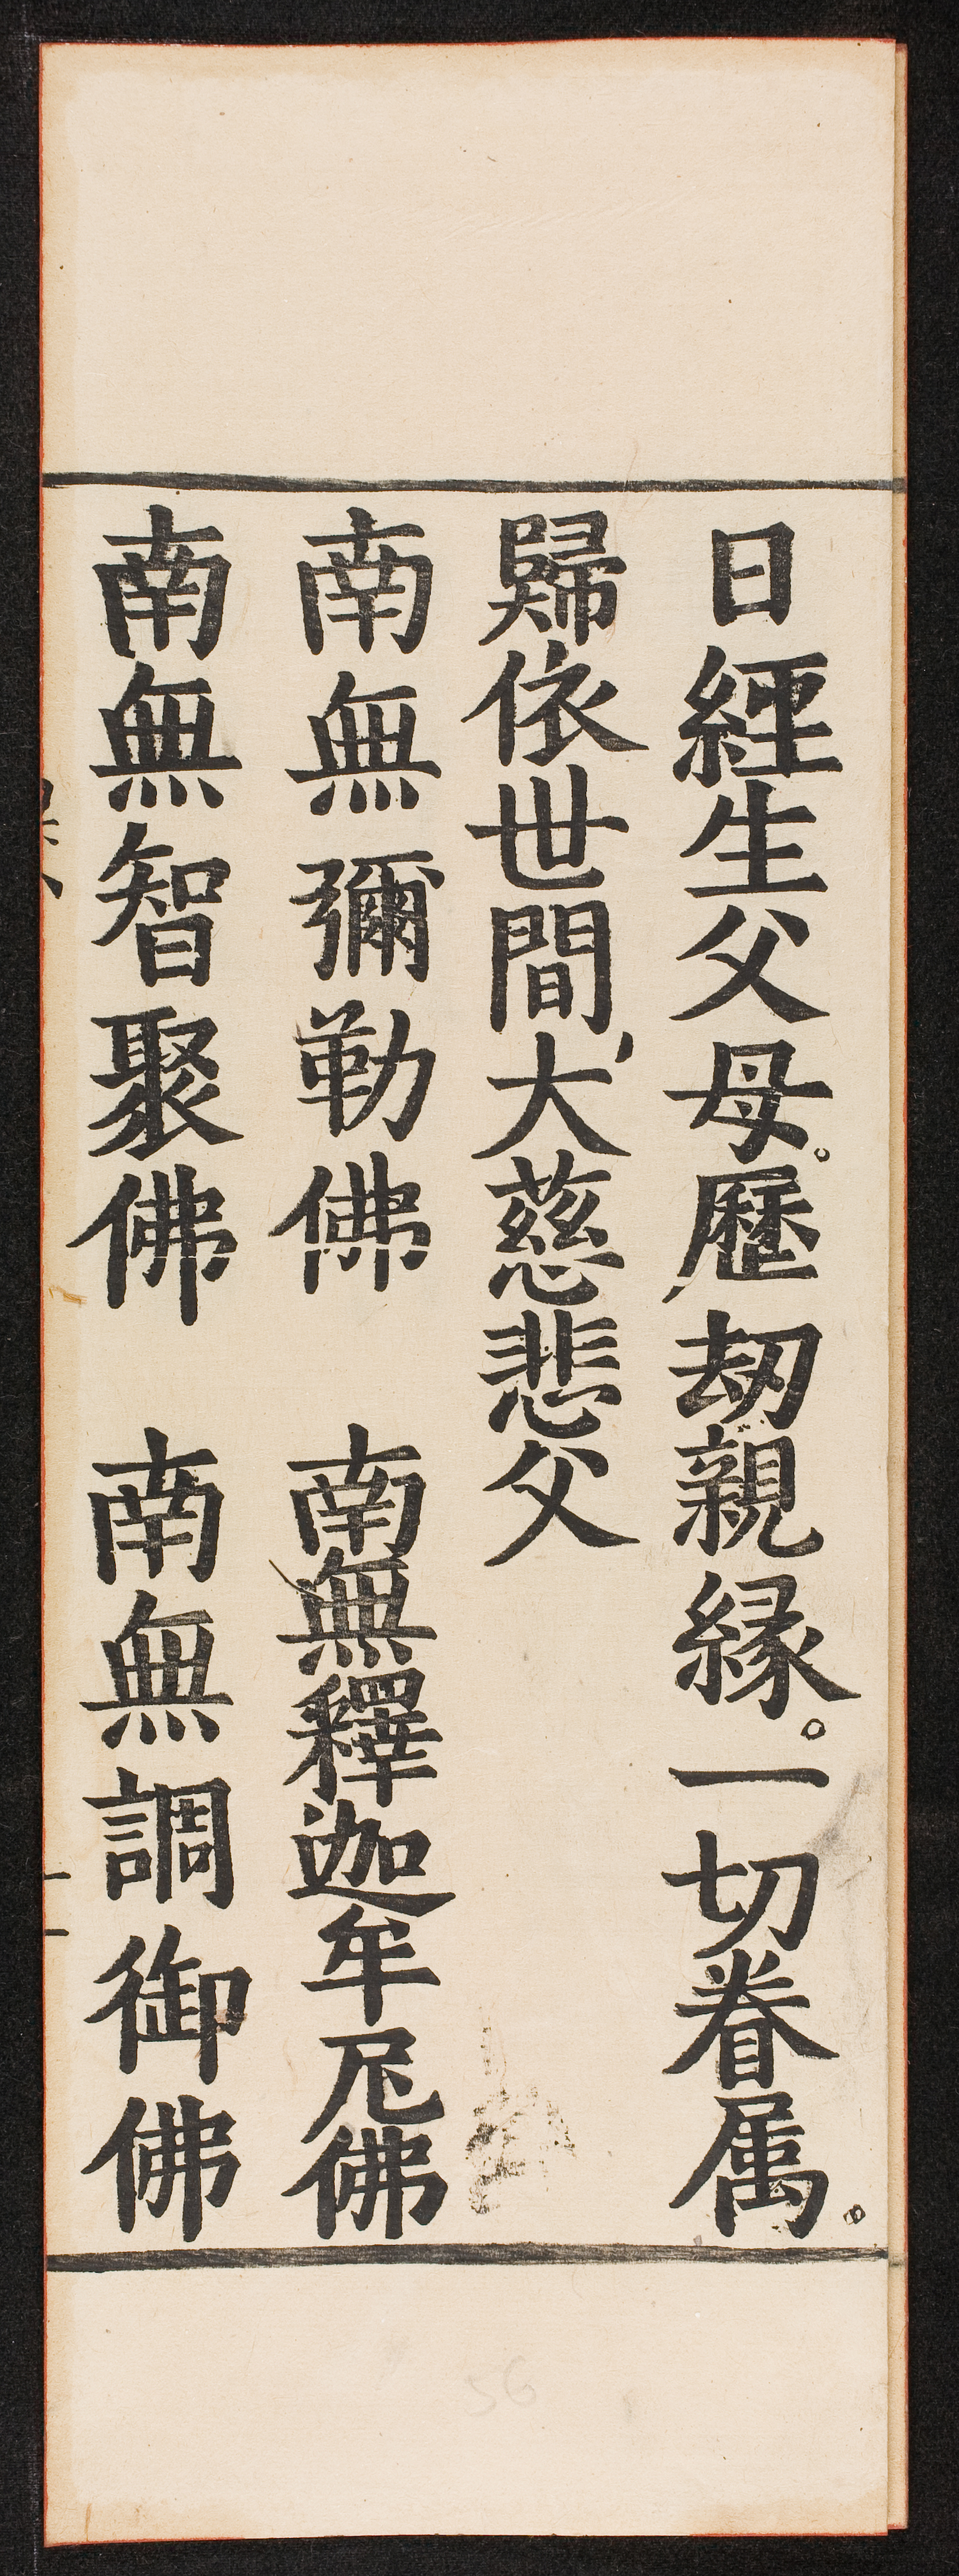 日經生父母。歷劫親緣。一切眷属。
歸依世間大慈悲父
南無彌勒佛　南無釋迦牟尼佛
南無智聚佛　南無調御佛
56